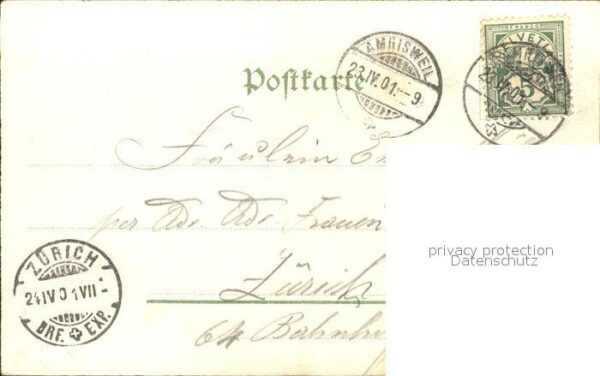 AMRISWEIL
23.IV.01.–9
HELVETIA
5
Postkarte
Fräulein
per Adr. Adr. Frauen
Zürich
64 Bahnho
ZÜRICH
24.IV.01.VII–
BRF. EXP.
privacy protection
Datenschutz